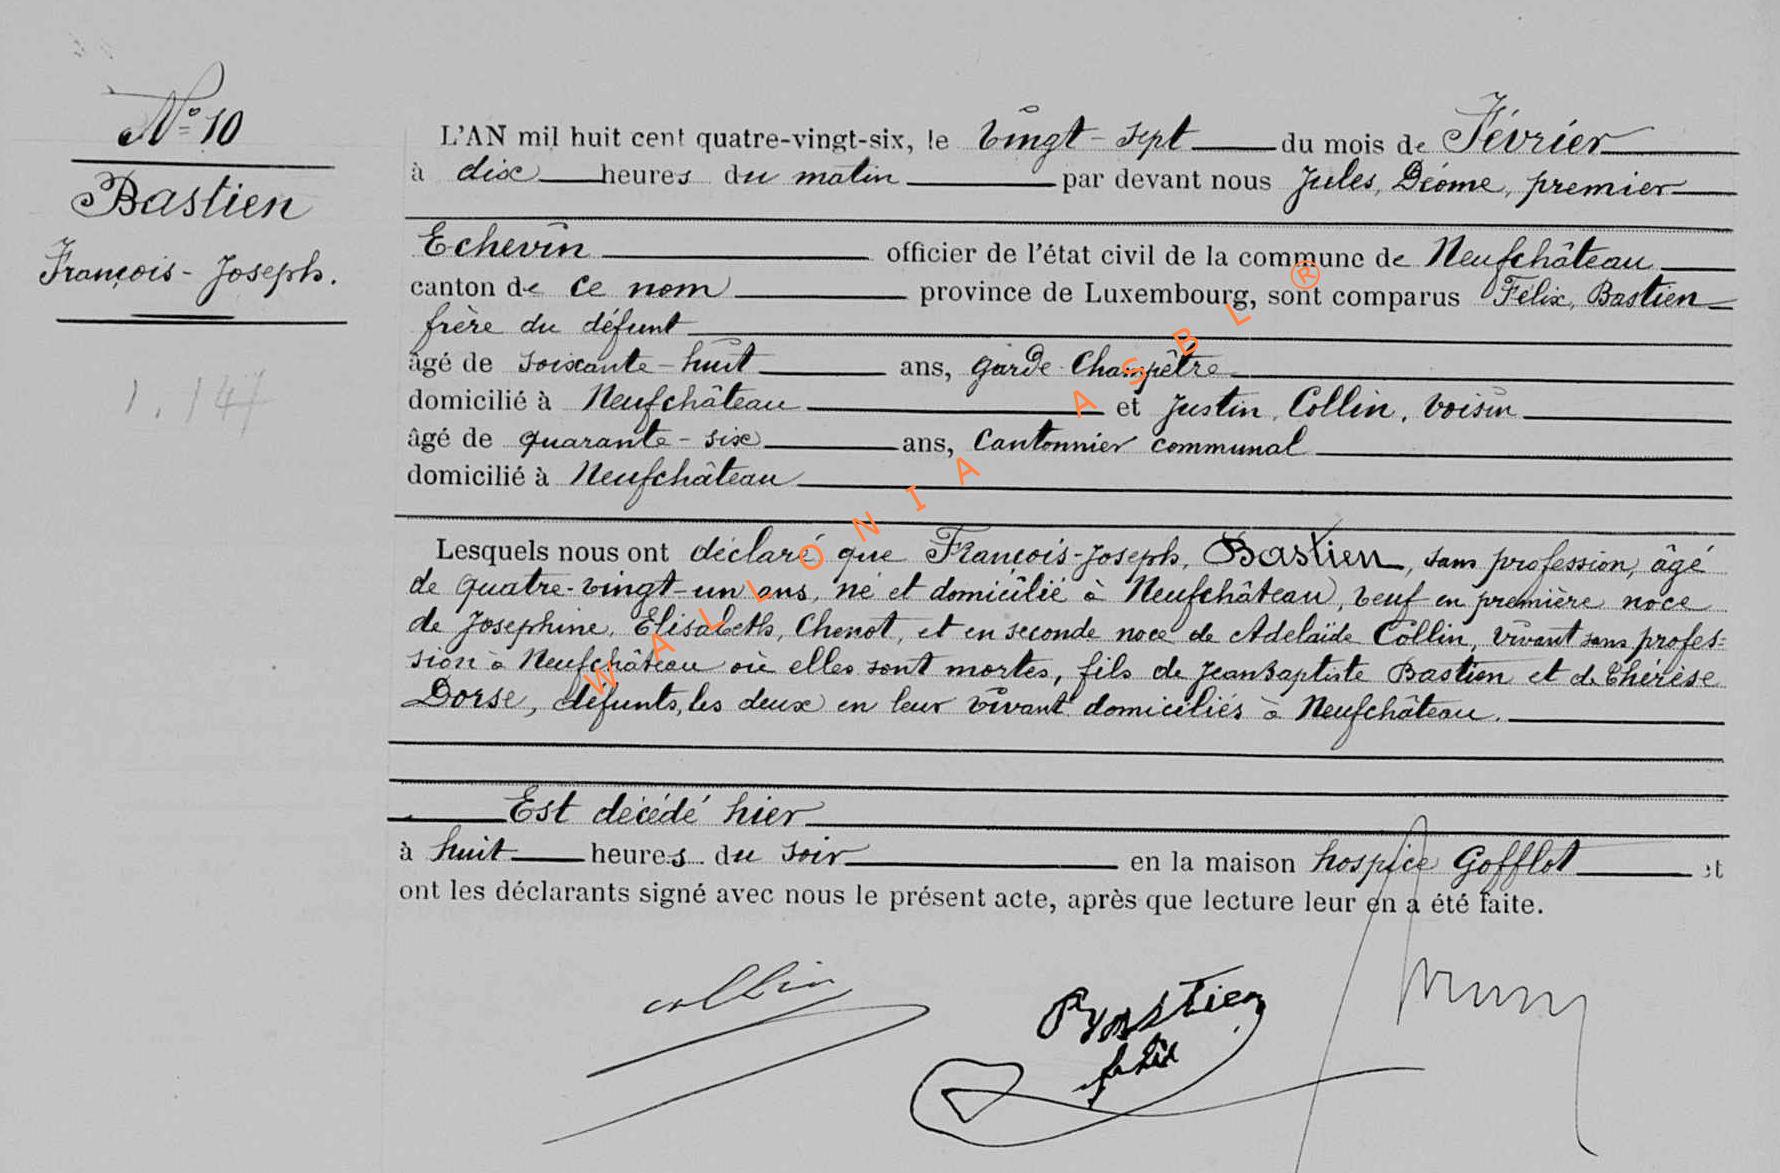 N° 10
Bastien
François-Joseph.
1.147
L'AN mil huit cent quatre-vingt-six, le vingt-sept du mois de Février
à dix heures du matin par devant nous Jules, Déome, premier
Echevin officier de l'état civil de la commune de Neufchâteau
canton de ce nom province de Luxembourg, sont comparus Félix, Bastien
frère du défunt
âgé de soixante-huit ans, garde Champêtre
domicilié à Neufchâteau et Justin, Collin, voisin
âgé de quarante-six ans, Cantonnier communal
domicilié à Neufchâteau
Lesquels nous ont déclaré que François-Joseph, Bastien, sans profession, âgé
de quatre-vingt-un ans, né et domicilié à Neufchâteau, veuf en première noce
de Josephine, Elisabeth, Chenot, et en seconde noce de Adelaïde Collin, vivant sans profes=
sion à Neufchâteau où elles sont mortes, fils de Jean Baptiste Bastien et de Thérèse
Dorse, défunts, les deux en leur vivant domiciliés à Neufchâteau.
Est décédé hier
à huit heures du soir en la maison hospice Gofflot et
ont les déclarants signé avec nous le présent acte, après que lecture leur en a été faite.
collin
Bastien
félix
WALLONIA ASBL ®